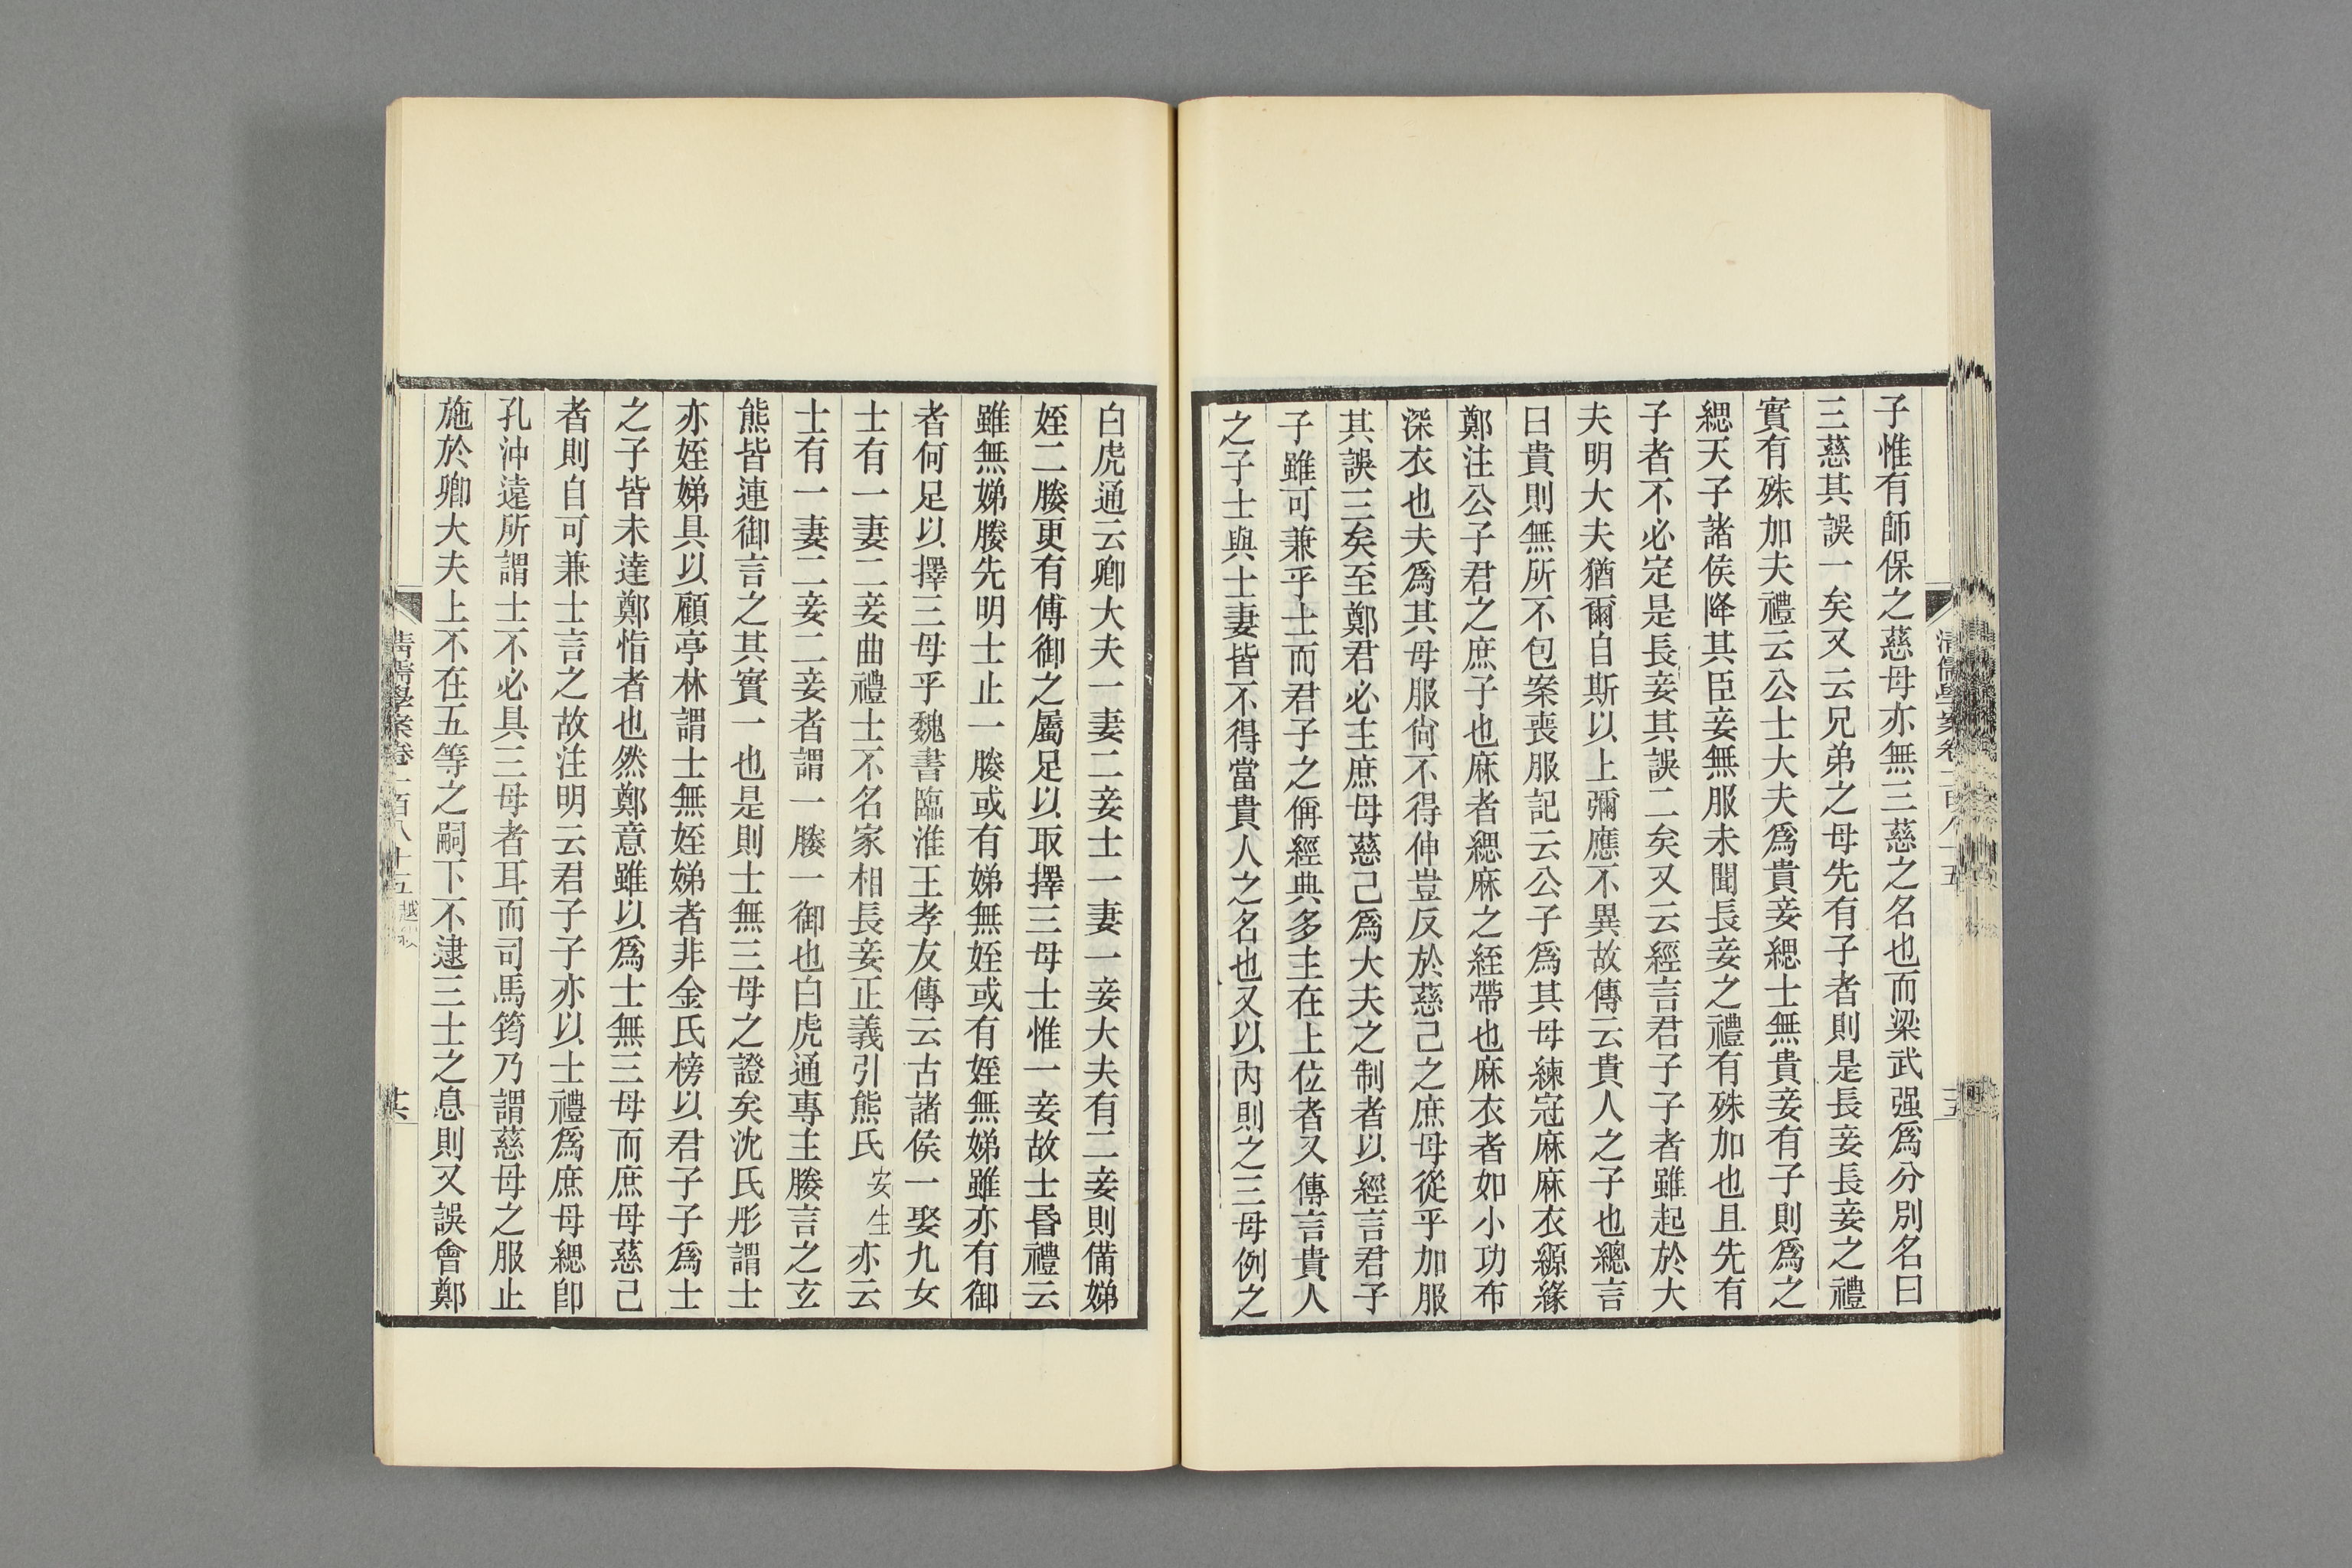 子惟有師保之慈母亦無三慈之名也而梁武强爲分別名曰
三慈其誤一矣又云兄弟之母先有子者則是長妾長妾之禮
實有殊加夫禮云公士大夫爲貴妾緦士無貴妾有子則爲之
緦天子諸侯降其臣妾無服未聞長妾之禮有殊加也且先有
子者不必定是長妾其誤二矣又云經言君子子者雖起於大
夫明大夫猶爾自斯以上彌應不異故傳云貴人之子也總言
曰貴則無所不包案喪服記云公子爲其母練冠麻麻衣縓緣
鄭注公子君之庶子也麻者緦麻之絰帶也麻衣者如小功布
深衣也夫爲其母服尙不得伸豈反於慈己之庶母從乎加服
其誤三矣至鄭君必主庶母慈己爲大夫之制者以經言君子
子雖可兼乎士而君子之偁經典多主在上位者又傳言貴人
之子士與士妻皆不得當貴人之名也又以內則之三母例之
白虎通云卿大夫一妻二妾士一妻一妾大夫有二妾則備娣
姪二媵更有傅御之屬足以取擇三母士惟一妾故士昏禮云
雖無娣媵先明士止一媵或有娣無姪或有姪無娣雖亦有御
者何足以擇三母乎魏書臨淮王孝友傳云古諸侯一娶九女
士有一妻二妾曲禮士不名家相長妾正義引熊氏安生亦云
士有一妻二妾二妾者謂一媵一御也白虎通專主媵言之玄
熊皆連御言之其實一也是則士無三母之證矣沈氏彤謂士
亦姪娣具以顧亭林謂士無姪娣者非金氏榜以君子子爲士
之子皆未達鄭恉者也然鄭意雖以爲士無三母而庶母慈己
者則自可兼士言之故注明云君子子亦以士禮爲庶母緦卽
孔沖遠所謂士不必具三母者耳而司馬筠乃謂慈母之服止
施於卿大夫上不在五等之嗣下不逮三士之息則又誤會鄭
清儒學案卷一百八十五